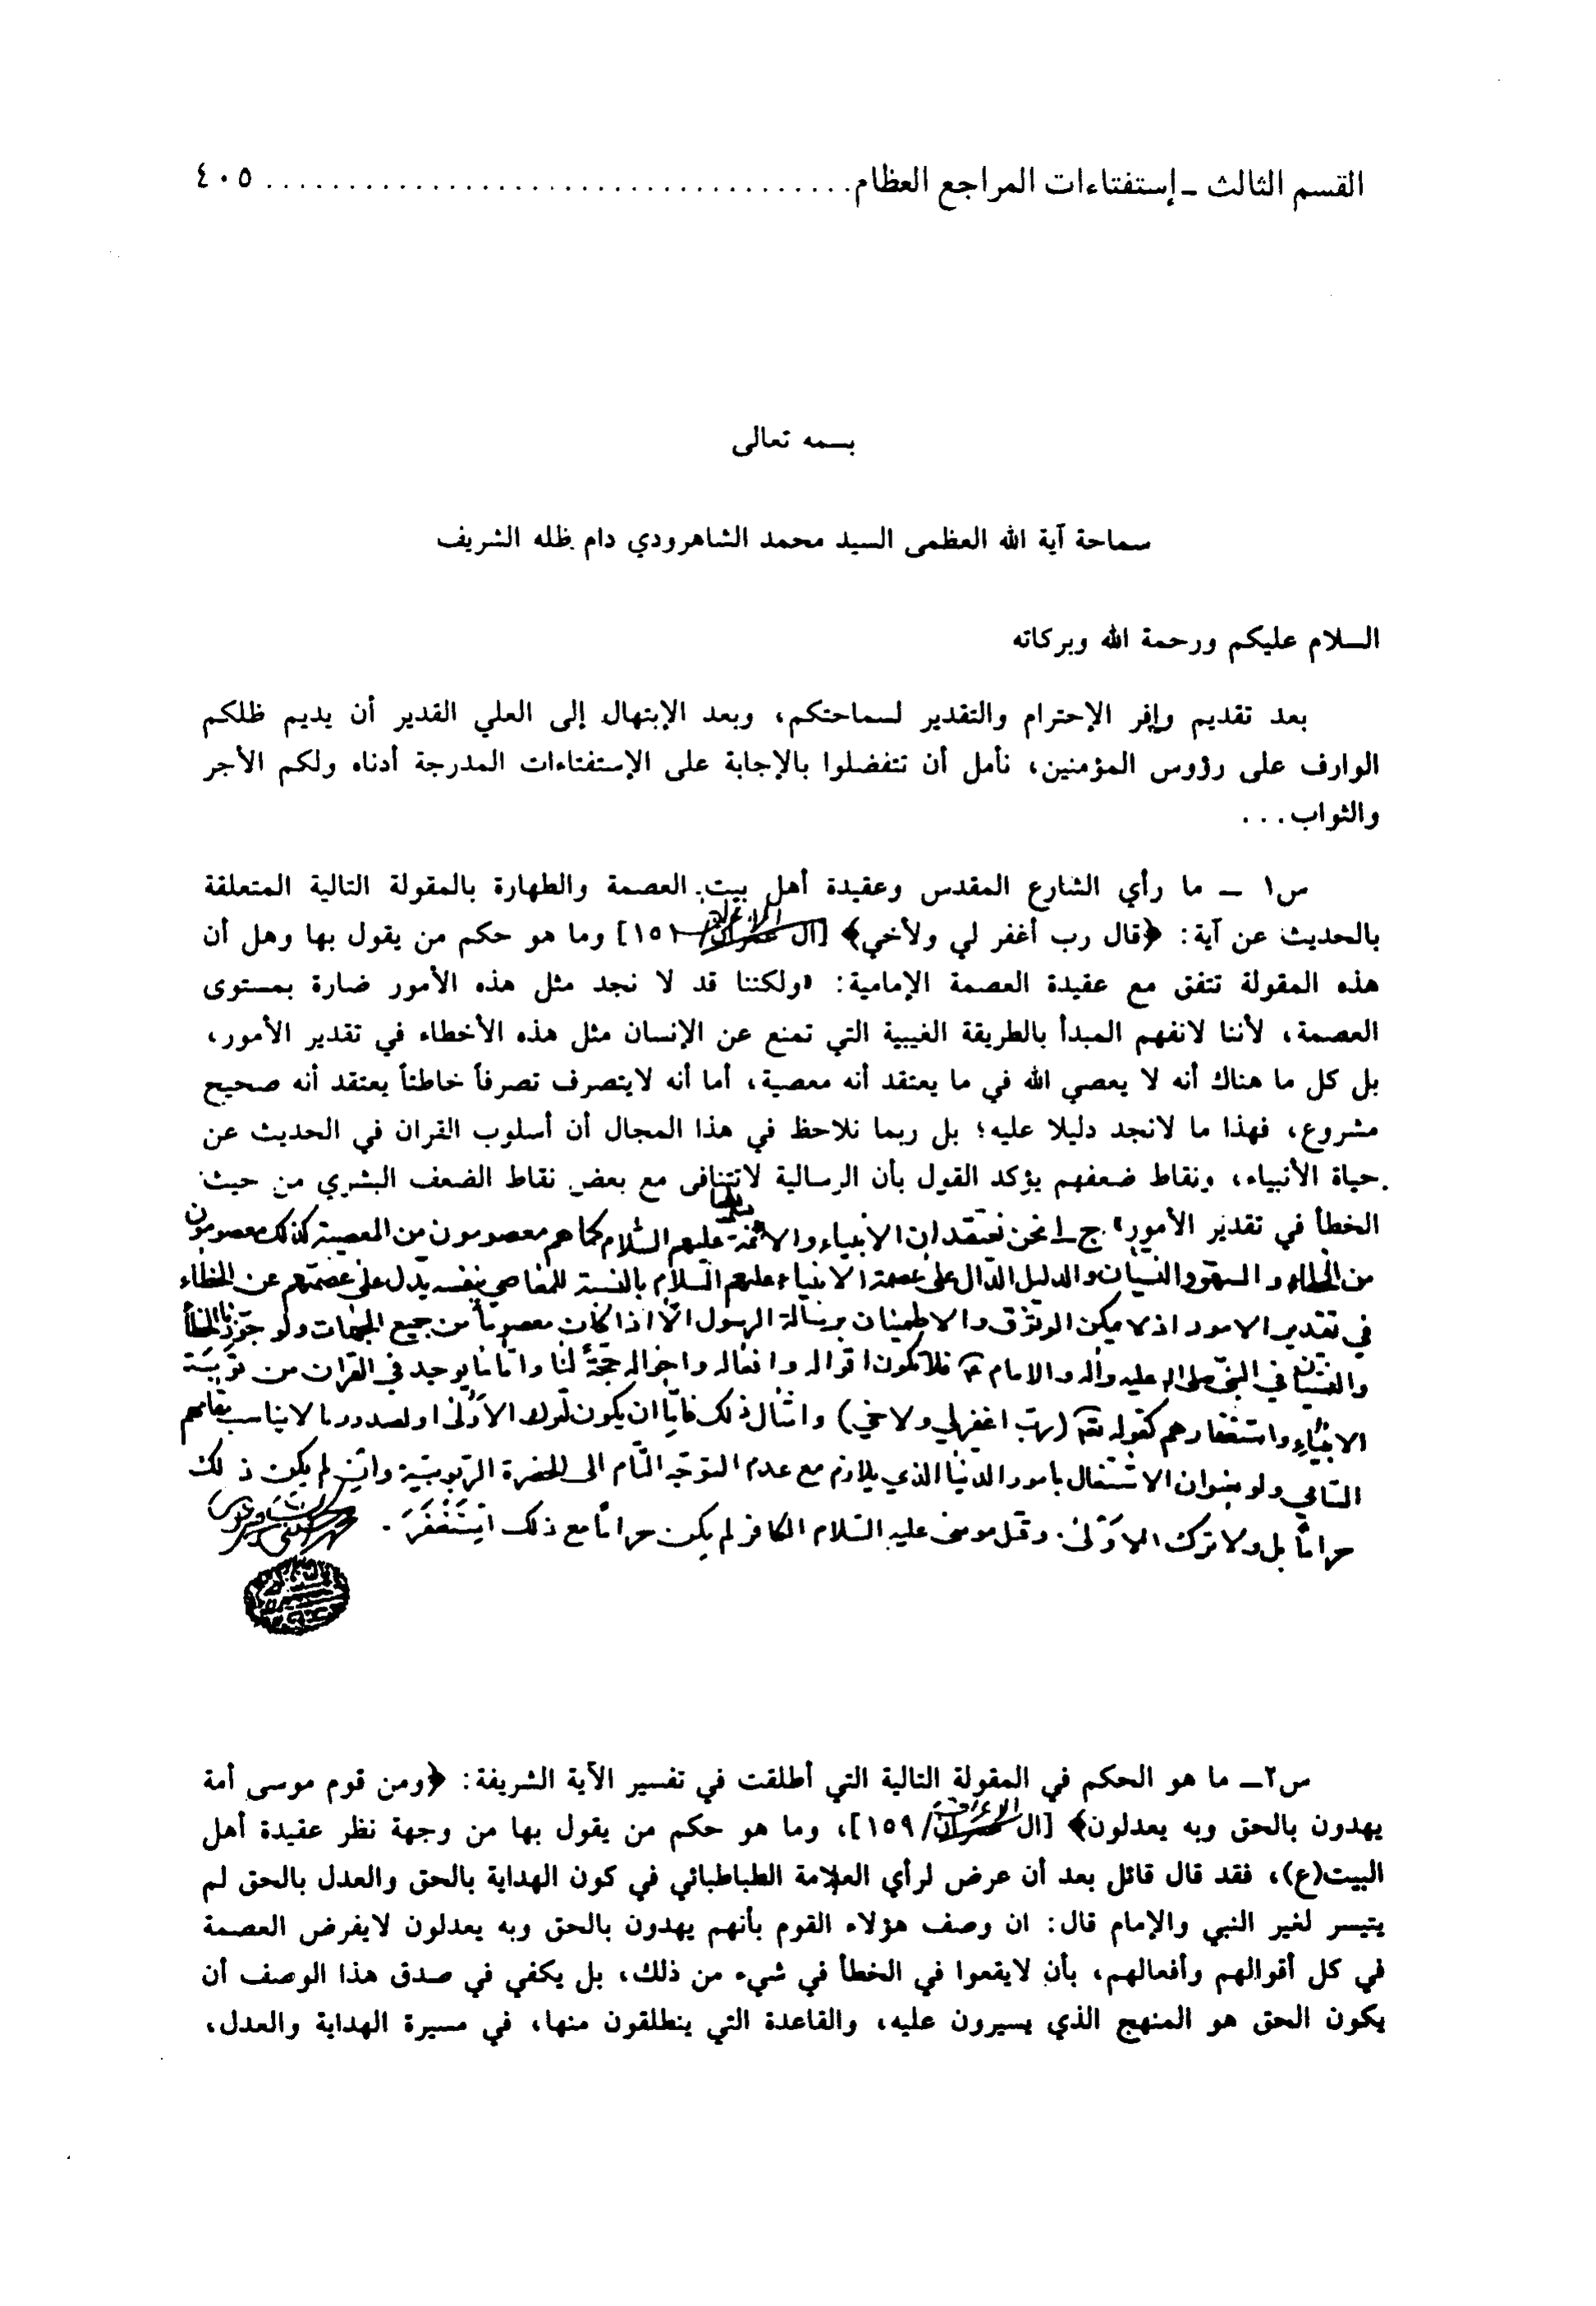 القسم الثالث ـ إستفتاءات المراجع العظام ................................... ٤٠٥
بسمه تعالى
سماحة آية الله العظمى السيد محمد الشاهرودي دام ظله الشريف
السلام عليكم ورحمة الله وبركاته
بعد تقديم وافر الإحترام والتقدير لسماحتكم، وبعد الإبتهال إلى العلي القدير أن يديم ظلكم
الوارف على رؤوس المؤمنين، نأمل أن تتفضلوا بالإجابة على الإستفتاءات المدرجة أدناه ولكم الأجر
والثواب...
س١ ـ ما رأي الشارع المقدس وعقيدة أهل بيت العصمة والطهارة بالمقولة التالية المتعلقة
بالحديث عن آية: ﴿قال رب أغفر لي ولأخي﴾ [آل عمران/ الاعراف ١٥١] وما هو حكم من يقول بها وهل أن
هذه المقولة تتفق مع عقيدة العصمة الإمامية: «ولكننا قد لا نجد مثل هذه الأمور ضارة بمستوى
العصمة، لأننا لانفهم المبدأ بالطريقة الغيبية التي تمنع عن الإنسان مثل هذه الأخطاء في تقدير الأمور،
بل كل ما هناك أنه لا يعصي الله في ما يعتقد أنه معصية، أما أنه لايتصرف تصرفاً خاطئاً يعتقد أنه صحيح
مشروع، فهذا ما لانجد دليلا عليه؛ بل ربما نلاحظ في هذا المجال أن أسلوب القران في الحديث عن
حياة الأنبياء، ونقاط ضعفهم يؤكد القول بأن الرسالية لاتتنافى مع بعض نقاط الضعف البشري من حيث
الخطأ في تقدير الأمور» ج ـ نحن نعتقد ان الانبياء والائمة عليهم السلام كما هم معصومون من المعصية كذلك معصومون
من الخطاء و السهو والنسيان والدليل الدال على عصمة الانبياء عليهم السلام بالنسبة للمعاصي بنفسه يدل على عصمتهم عن الخطاء
في تقدير الامور اذ لا يمكن الوثوق والاطمينان برسالة الرسول الّا اذا كان معصوماً من جميع الجهات ولو جوّزنا الخطأ
والنسيان في النبي صلى الله عليه وآله والامام ع فلا تكون اقواله وافعاله واحواله حجّة لنا وامّا ما يوجد في القرآن من توبة
الانبياء واستغفارهم كقوله تعالى (ربّ اغفر لي ولاخي) وامثال ذلك فامّا ان يكون لترك الاولى او لصدور ما لا يناسب مقامهم
السامي ولو بعنوان الاشتغال بامور الدنيا الذي يلازم مع عدم التوجّه التام الى الحضرة الربوبيّة وان لم يكن ذلك
حراماً بل ولا ترك الاولى. وقتل موسى عليه السلام الكافر لم يكن حراماً مع ذلك استغفر.
س٢ـ ما هو الحكم في المقولة التالية التي أطلقت في تفسير الآية الشريفة: ﴿ومن قوم موسى أمة
يهدون بالحق وبه يعدلون﴾ [ال عمران الاعراف/١٥٩]، وما هو حكم من يقول بها من وجهة نظر عقيدة أهل
البيت(ع)، فقد قال قائل بعد أن عرض لرأي العلامة الطباطبائي في كون الهداية بالحق والعدل بالحق لم
يتيسر لغير النبي والإمام قال: ان وصف هؤلاء القوم بأنهم يهدون بالحق وبه يعدلون لايفرض العصمة
في كل أقوالهم وأفعالهم، بأن لايقعوا في الخطأ في شيء من ذلك، بل يكفي في صدق هذا الوصف أن
يكون الحق هو المنهج الذي يسيرون عليه، والقاعدة التي ينطلقون منها، في مسيرة الهداية والعدل،